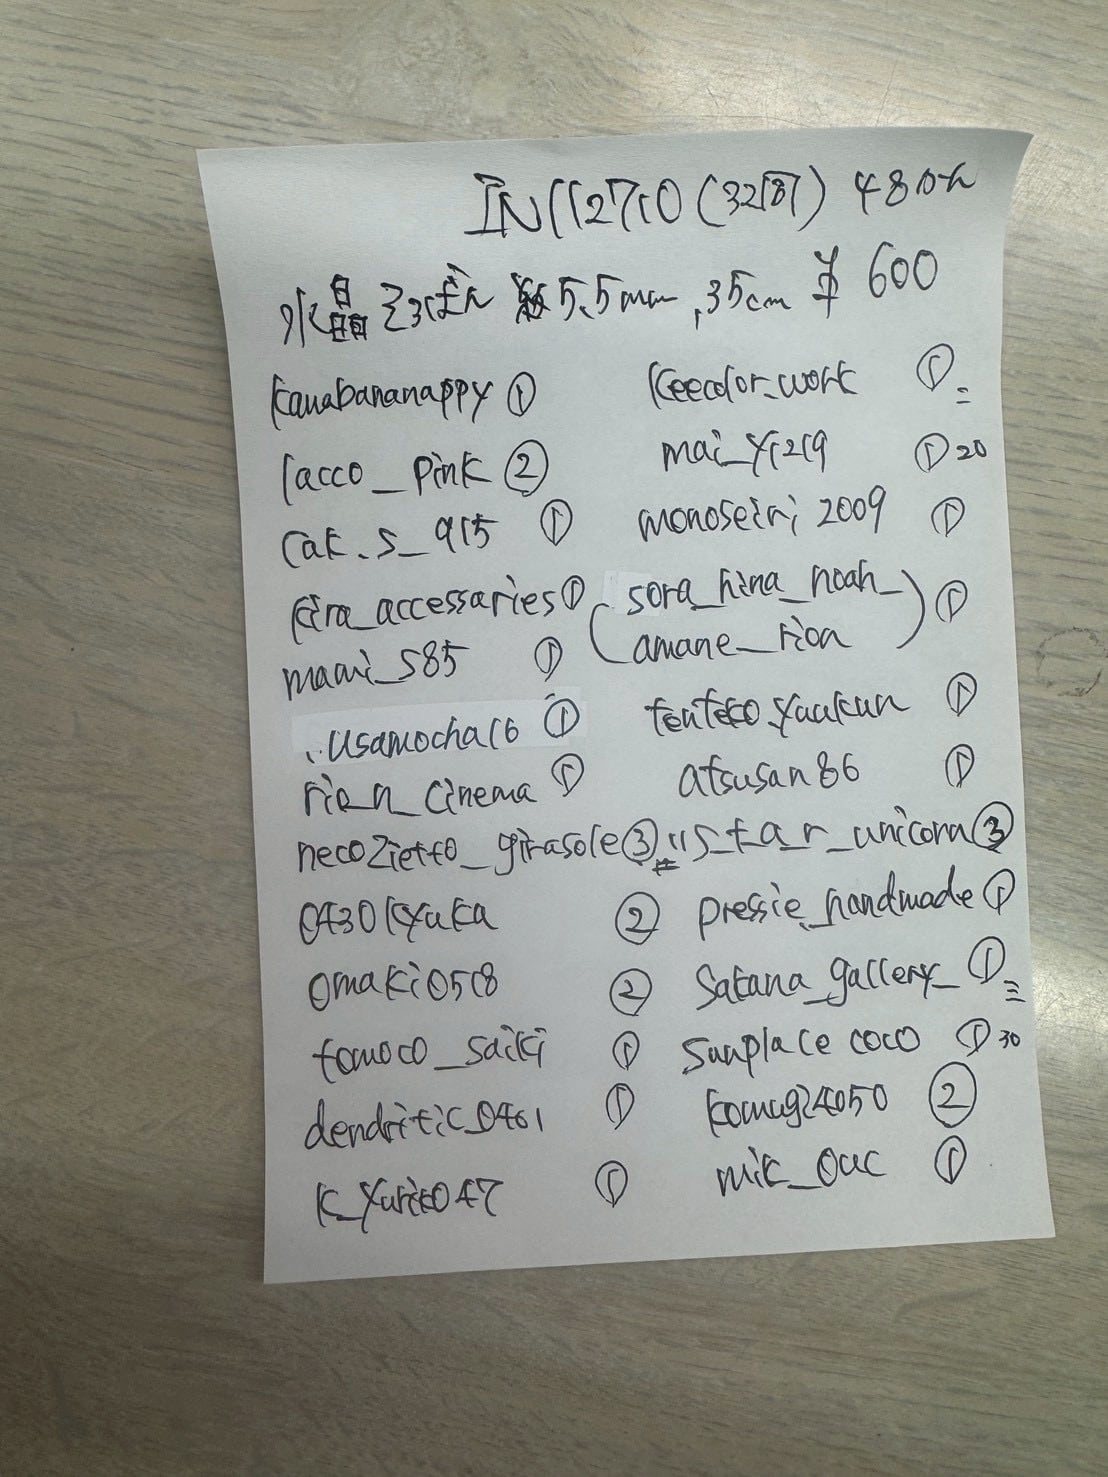 IN112710 (3287) 480ル
水晶 さざれ 約5.5mm, 35cm ¥600
kanabananappy ①
lacco_pink ②
cat.s_915 ①
kira_accessaries ①
mami_585 ①
.usamocha16 ①
rio_n_cinema ①
necozietto_girasole ③
0430kyuka ②
omaki0508 ②
tomoco_saiki ①
dendritic_0401 ①
k_yuriko47 ①
keecolor_work ①
mai_y1219 ① 20
monoseiri2009 ①
(sora_hina_noah_
amane_rion) ①
tenteko.yuukun ①
atsusan86 ①
s_t_a_r_unicorn ③
pressie_handmade ①
satana_gallery_ ①
sunplace coco ① 30
komugi4050 ②
mik_ouc ①